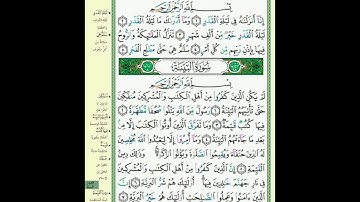 بِسْمِ ٱللَّهِ ٱلرَّحْمَٰنِ ٱلرَّحِيمِ
إِنَّآ أَنزَلْنَٰهُ فِى لَيْلَةِ ٱلْقَدْرِ ۝١ وَمَآ أَدْرَىٰكَ مَا لَيْلَةُ ٱلْقَدْرِ ۝٢
لَيْلَةُ ٱلْقَدْرِ خَيْرٌ مِّنْ أَلْفِ شَهْرٍ ۝٣ تَنَزَّلُ ٱلْمَلَٰٓئِكَةُ وَٱلرُّوحُ
فِيهَا بِإِذْنِ رَبِّهِم مِّن كُلِّ أَمْرٍ ۝٤ سَلَٰمٌ هِىَ حَتَّىٰ مَطْلَعِ ٱلْفَجْرِ ۝٥
سُورَةُ البَيِّنَةِ
بِسْمِ ٱللَّهِ ٱلرَّحْمَٰنِ ٱلرَّحِيمِ
لَمْ يَكُنِ ٱلَّذِينَ كَفَرُوا۟ مِنْ أَهْلِ ٱلْكِتَٰبِ وَٱلْمُشْرِكِينَ مُنفَكِّينَ
حَتَّىٰ تَأْتِيَهُمُ ٱلْبَيِّنَةُ ۝١ رَسُولٌ مِّنَ ٱللَّهِ يَتْلُوا۟ صُحُفًا مُّطَهَّرَةً ۝٢
فِيهَا كُتُبٌ قَيِّمَةٌ ۝٣ وَمَا تَفَرَّقَ ٱلَّذِينَ أُوتُوا۟ ٱلْكِتَٰبَ إِلَّا مِنۢ
بَعْدِ مَا جَآءَتْهُمُ ٱلْبَيِّنَةُ ۝٤ وَمَآ أُمِرُوٓا۟ إِلَّا لِيَعْبُدُوا۟ ٱللَّهَ مُخْلِصِينَ
لَهُ ٱلدِّينَ حُنَفَآءَ وَيُقِيمُوا۟ ٱلصَّلَوٰةَ وَيُؤْتُوا۟ ٱلزَّكَوٰةَ ۚ وَذَٰلِكَ دِينُ
ٱلْقَيِّمَةِ ۝٥ إِنَّ ٱلَّذِينَ كَفَرُوا۟ مِنْ أَهْلِ ٱلْكِتَٰبِ وَٱلْمُشْرِكِينَ
فِى نَارِ جَهَنَّمَ خَٰلِدِينَ فِيهَآ ۚ أُو۟لَٰٓئِكَ هُمْ شَرُّ ٱلْبَرِيَّةِ ۝٦ إِنَّ
ٱلَّذِينَ ءَامَنُوا۟ وَعَمِلُوا۟ ٱلصَّٰلِحَٰتِ أُو۟لَٰٓئِكَ هُمْ خَيْرُ ٱلْبَرِيَّةِ ۝٧